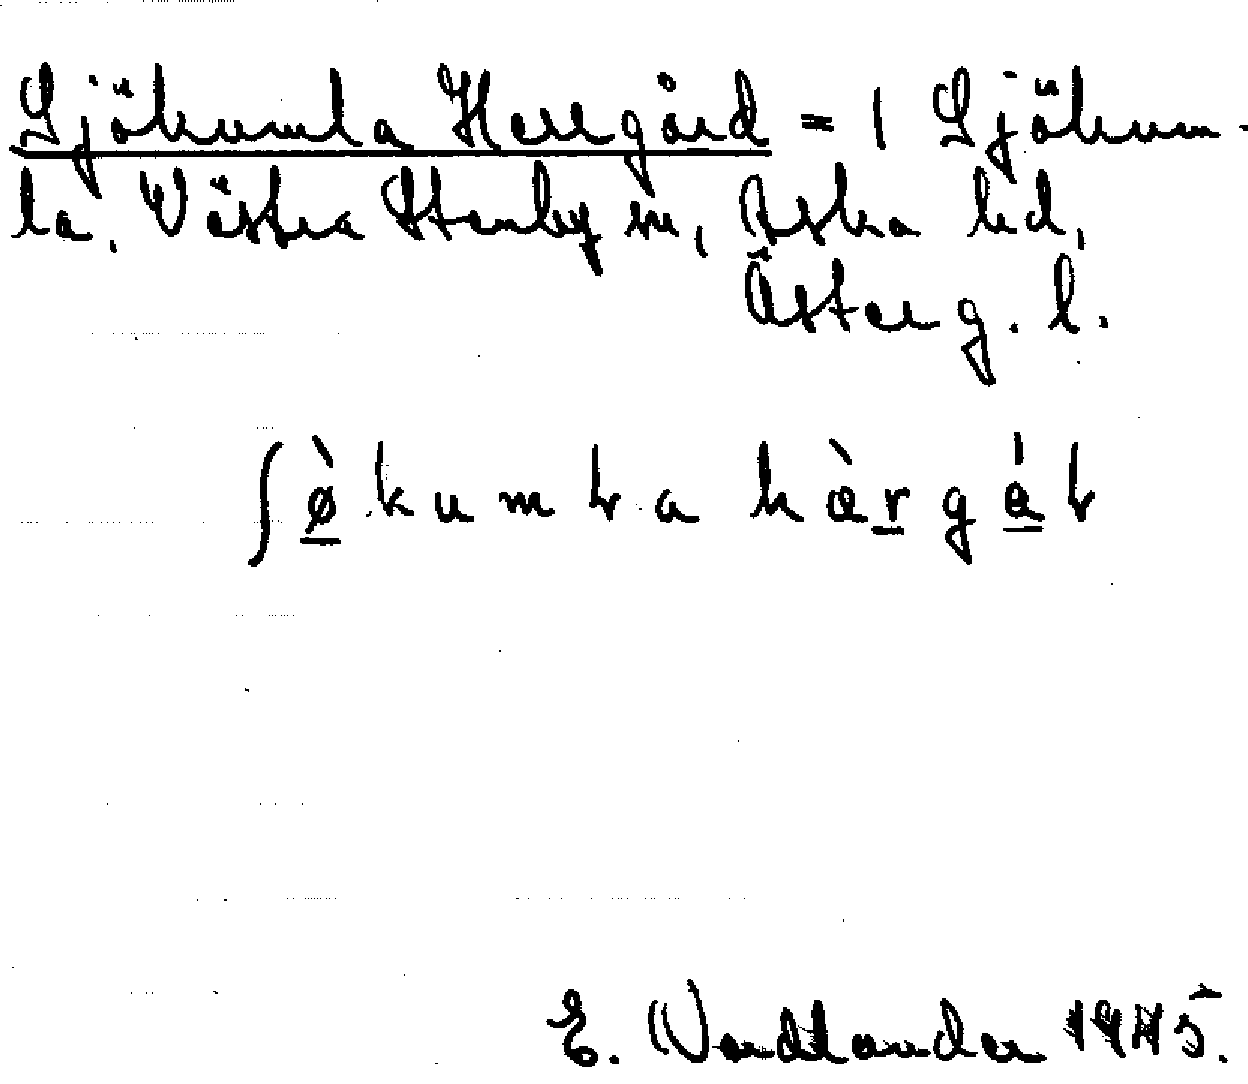 Sjökumla Herrgård = 1 Sjökum-
la, Västra Stenby sn, Aska hd,
Österg. l.
ʃø̀kumɫa hæ̀rgáɫ
E. Wadtlander 1945.